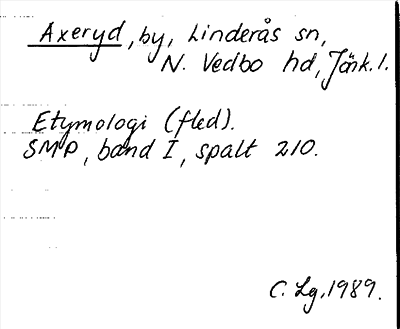 Axeryd, by, Linderås sn,
N. Vedbo hd, Jönk. l.
Etymologi (fled).
SMP, band I, spalt 210.
C. Lg. 1989.